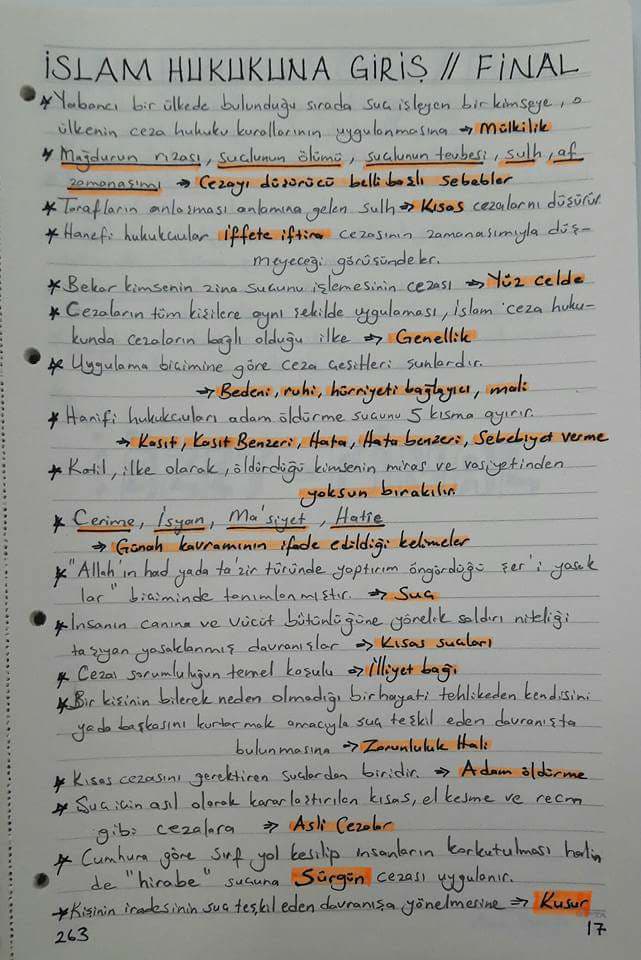 İSLAM HUKUKUNA GİRİŞ // FİNAL
* Yabancı bir ülkede bulunduğu sırada suç işleyen bir kimseye, o
ülkenin ceza hukuku kurallarının uygulanmasına ⇒ Mülkilik
* Mağdurun rızası, suçlunun ölümü, suçlunun tevbesi, sulh, af
zamanaşımı ⇒ Cezayı düşürücü belli başlı sebebler
* Tarafların anlaşması anlamına gelen sulh ⇒ Kısas cezalarını düşürür.
* Hanefi hukukçular iffete iftira cezasının zamanaşımıyla düş-
meyeceği görüşündeler.
* Bekar kimsenin zina suçunu işlemesinin cezası ⇒ Yüz celde
* Cezaların tüm kişilere aynı şekilde uygulaması, İslam ceza huku-
kunda cezaların bağlı olduğu ilke ⇒ Genellik
* Uygulama biçimine göre ceza çeşitleri şunlardır.
⇒ Bedeni, ruhi, hürriyeti bağlayıcı, mali
* Hanifi hukukçuları adam öldürme suçunu 5 kısma ayırır.
⇒ Kasıt, Kasıt Benzeri, Hata, Hata benzeri, Sebebiyet verme
* Katil, ilke olarak, öldördüğü kimsenin miras ve vasiyetinden
yoksun bırakılır.
* Cerime, İsyan, Ma'siyet, Hatie
⇒ Günah kavramının ifade edildiği kelimeler
* "Allah'ın had yada ta'zir türünde yaptırım öngördüğü şer'i yasak
lar" biçiminde tanımlanmıştır. ⇒ Suç
* İnsanın canına ve vücut bütünlüğüne yönelik saldırı niteliği
taşıyan yasaklanmış davranışlar ⇒ Kısas suçları
* Cezai sorumluluğun temel koşulu ⇒ İlliyet bağı
* Bir kişinin bilerek neden olmadığı bir hayati tehlikeden kendisini
yada başkasını kurtarmak amacıyla suç teşkil eden davranışta
bulunmasına ⇒ Zorunluluk Hali
* Kısas cezasını gerektiren suçlardan biridir. ⇒ Adam öldürme
* Suç için asıl olarak kararlaştırılan kısas, el kesme ve recm
gibi cezalara ⇒ Asli Cezalar
* Cumhura göre sırf yol kesilip insanların korkutulması halin
de "hirabe" suçuna Sürgün cezası uygulanır.
* Kişinin iradesinin suç teşkil eden davranışa yönelmesine ⇒ Kusur
263 17